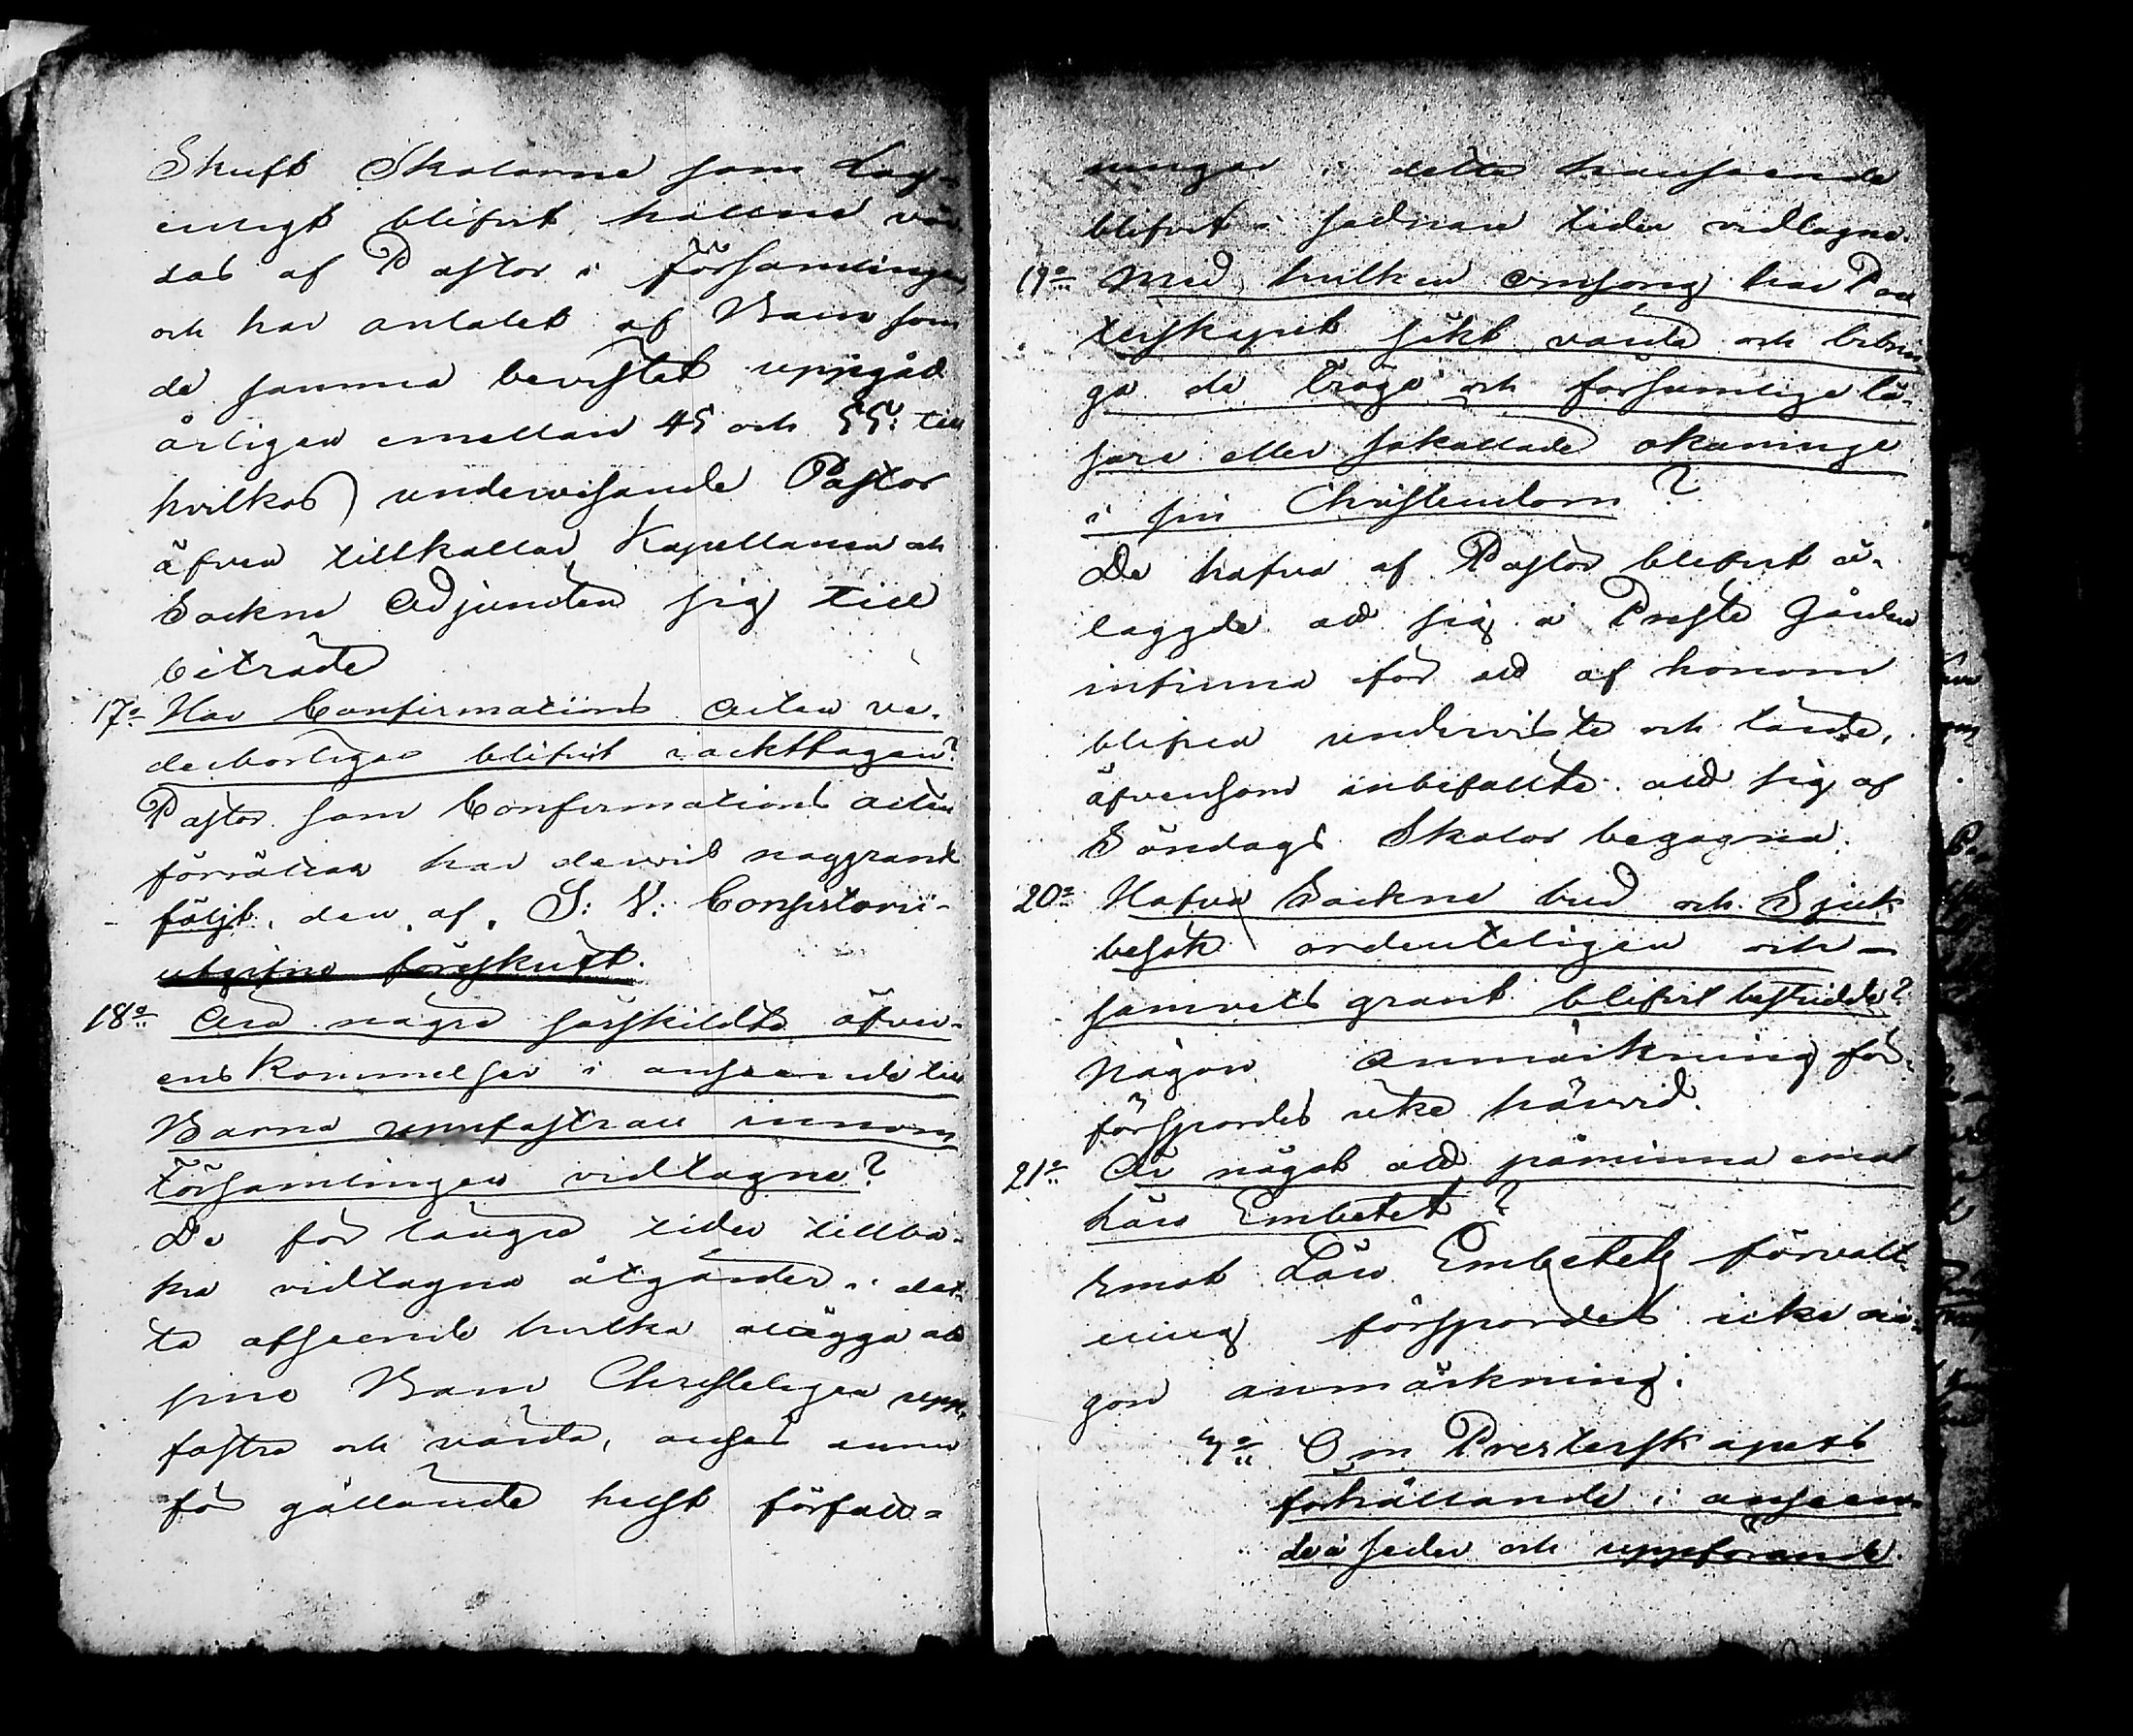 Skrift Skolorne som Lag-
enligt blifvit hållne vår
das af Pastor i församlingen
och har antalet af Barn som
de samma bevistat uppgåd
årligen emellan 45 och 55: till
hvilkas undervisande Pastor
äfven tillkallar Kapellanen och
Sockne Adjuncten sig till
biträde
17o Har Confirmations Acten ve-
derborligen blifvit iackttagen?
Pastor som Confirmations acten
förrättar har dervid noggrant
följt den af S: V: Consistorii
utgifne föreskrift.
18o Äro några särskildta öfver-
enskommelser i anseende till
Barna uppfostran innom
Församlingen vidtagne?
De för längre tider tillba-
ka vidtagna åtgärder i det-
ta afseende hvilka ålägga att
sine Barn Christeligen upp-
fostra och vårda, anses ännu
för gällande helst författ-
ningar i detta hänseende
blifvit i sednare tider vidtagne.
19o Med hvilken omsorg har Pres
terskapet sökt vårda och bibrin
ga de tröge och försumlige lä-
sare eller såkallade okunnige
i sin Christendom?
De hafva af Pastor blifvit å-
laggde att sig i Preste Gården
infinna för att af honom
blifva underviste och lärde,
äfvensom anbefallte att sig af
Söndags Skolor begagna.
20o Hafva Sockne bud och Sjuk
besök ordenteligen och
samvets grant blifvit bestridde?
Någon anmärkning för-
förspordes icke härvid.
21o Är något att påminna emot
Läro Embetet?
Emot Läro Embetets förvalt-
ning förspordes icke nå-
gon anmärkning.
3o Om Presterskapets
förhållande i anseen-
de å seder och uppförande.